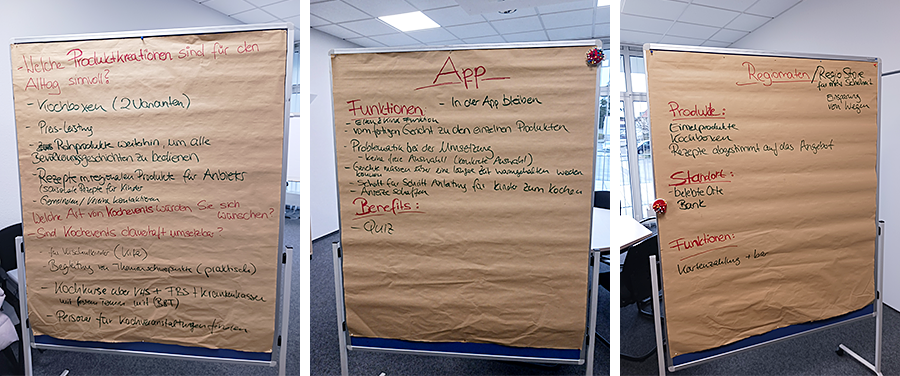 - Welche Produktkreationen sind für den
Alltag sinnvoll?
- Kochboxen (2 Varianten)
- Preis-Leistung
- Rohprodukte weiterhin, um alle
Bevölkerungsschichten zu bedienen
- Rezepte m. regionalen Produkte für
(saisonale Rezepte für Kinder
- Gemeinden / Vereine kontaktieren
Welche Art von Kochevents würden Sie sich
wünschen?
- Sind Kochevents dauerhaft umsetzbar?
- für Kirschnuller (Kita)
- Begleitung von Themenschwerpunkte (praktische)
- Kochkurse über VHS + TBS + Krankenkassen
mit festem Termin
- Personal für Kochveranstaltungen
App
Funktionen
- In der App bleiben
- Eltern & Kind Funktion
- vom fertigen Gericht zu den einzelnen Produkten
- Problematik bei der Umsetzung
- keine freie Auswahl (konkrete Auswahl)
- Gerichte müssen über eine längere Zeit warmgehalten werden
können
- Schritt für Schritt Anleitung für Kinder zum Kochen
- Anreize schaffen
Benefits:
- Quiz
Regiomaten / Regio Store
für mehr Sicherheit
Einsparung
von Wegen
Produkte:
Einzelprodukte
Kochboxen
Rezepte abgestimmt auf das Angebot
Standort:
- belebte Orte
Bank
Funktionen:
Kartenzahlung + bar